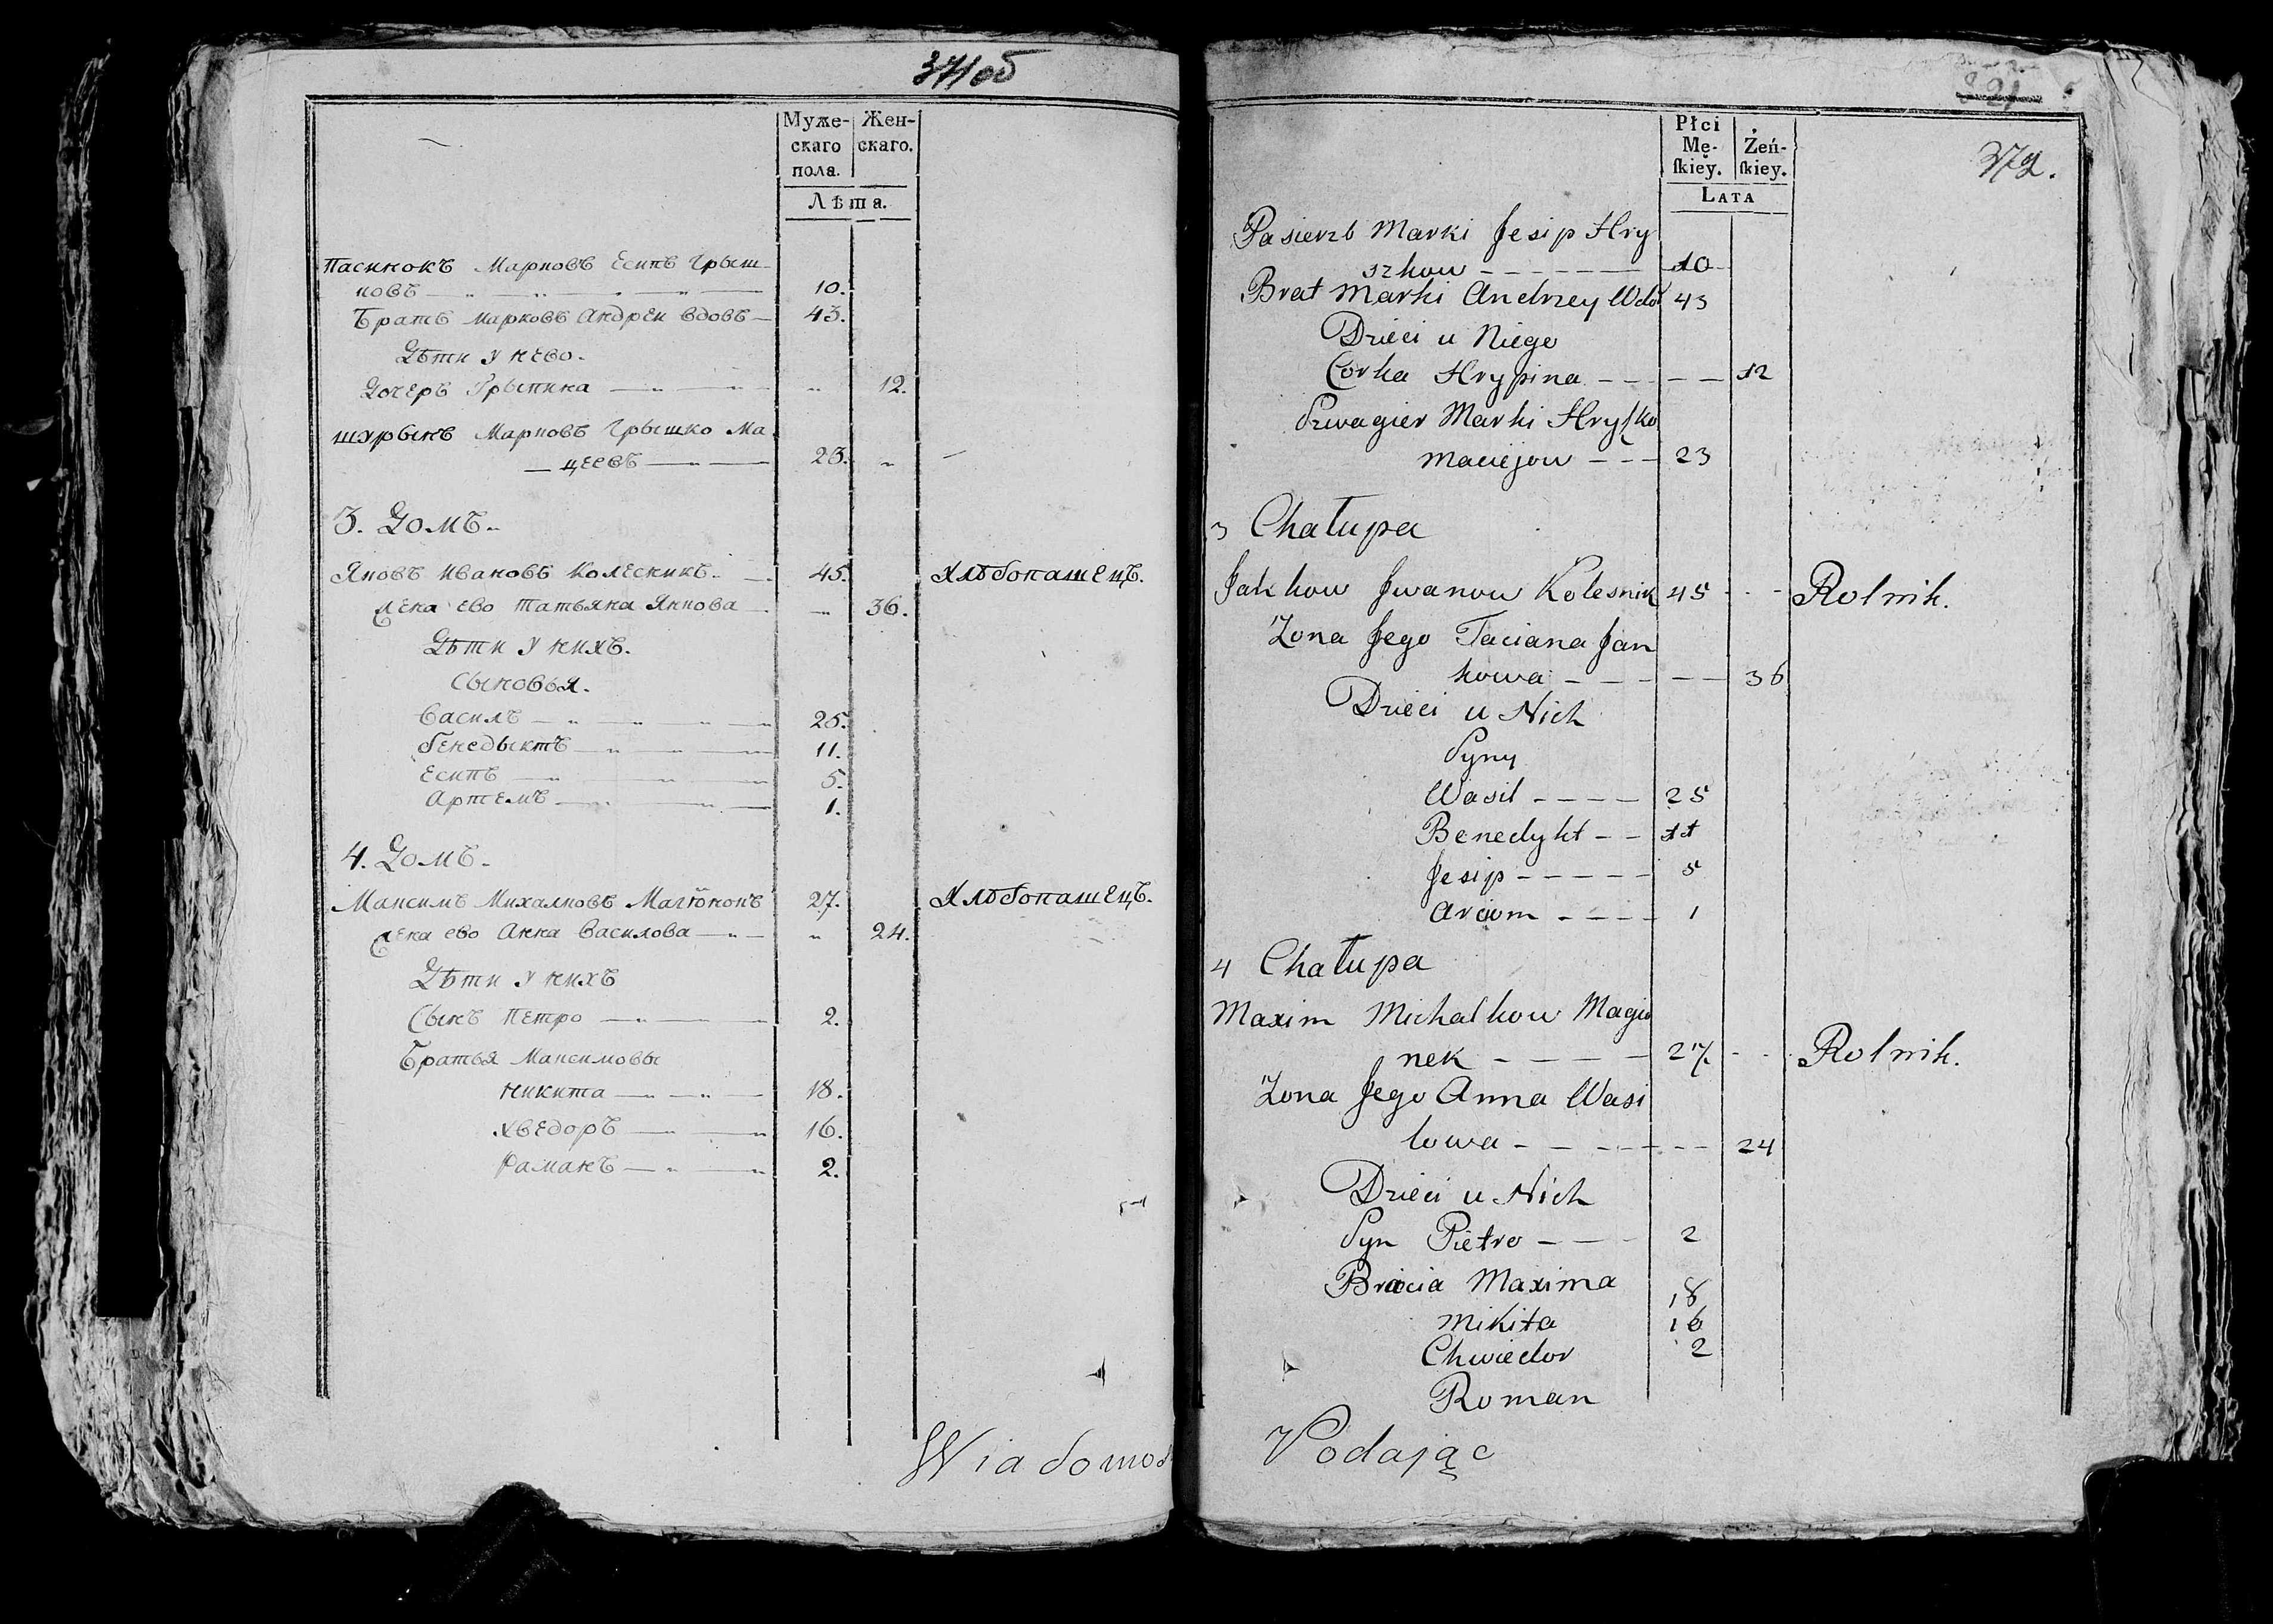 371об
Муже-
скаго
пола.
Жен-
скаго.
Лѣта.
Пасинокъ Марковъ Есипъ Грыш-
ковъ 10.
Братъ марковъ Андрей вдовъ 43.
Дѣти у нево.
Дочеръ Грыпина 12.
шурынъ Марковъ Грышко Ма
цеевъ 23.
3. Домъ.
Яковъ Ивановъ Колесникъ. 45. Хлѣбопашецъ.
Жена ево Татьяна Янкова 36.
Дѣти у нихъ.
Сыновья.
Василъ 25.
бенедыктъ 11.
Есипъ 5.
Артемъ 1.
4. Домъ.
Максимъ Михалковъ 27. Хлѣбопашецъ.
Жена ево Анна Василова 24.
Дѣти у нихъ
Сынъ Петро 2.
Братья Максимовы
Никита 18.
Хведоръ 16.
Раманъ 2.
Wiadomoś
Płci
Mę-
ſkiey.
Żeń-
ſkiey.
LATA
372.
Pasierzb Marki Jesip Hry
szkow 10
Brat Marki Andrzey Wdo 43
Dzieci u Niego
Corka Hrypina 12
Szwagier Marki Hryſko
Maciejow 23
3 Chałupa
Jakkow Jwanow Kolesnik 45 Rolnik.
Zona Jego Taciana Jan
kowa 36
Dzieci u Nich
Syny
Wasil 25
Benedykt 11
Jesip 5
Arciom 1
4 Chałupa
Maxim Michalkow Magio
nek 27 Rolnik.
Zona Jego Anna Wasi
lowa 24
Dzieci u Nich
Syn Pietro 2
Bracia Maxima 18
Mikita 16
Chwiedor 2
Roman
Podając